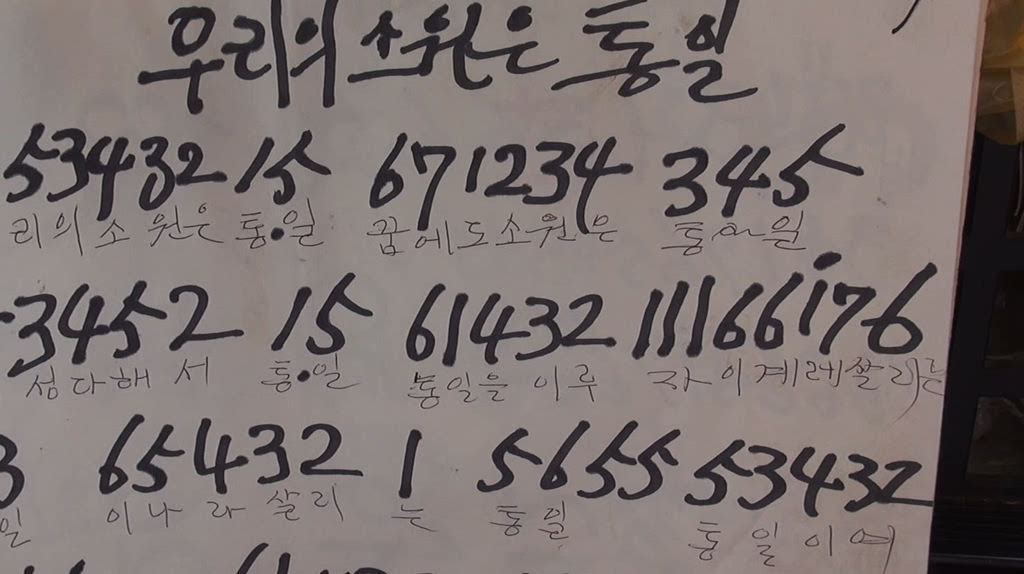 우리의 소원은 통일
53432 15 671234 345
리의 소원은 통일 꿈에도소원은 통ㅇㅡ일
3452 15 61432 11166i76
성다해서 통일 통일을 이루 자 이겨레살리는
3 65432 1 5655 53432
일 이나라살리 는 통일 통일이여